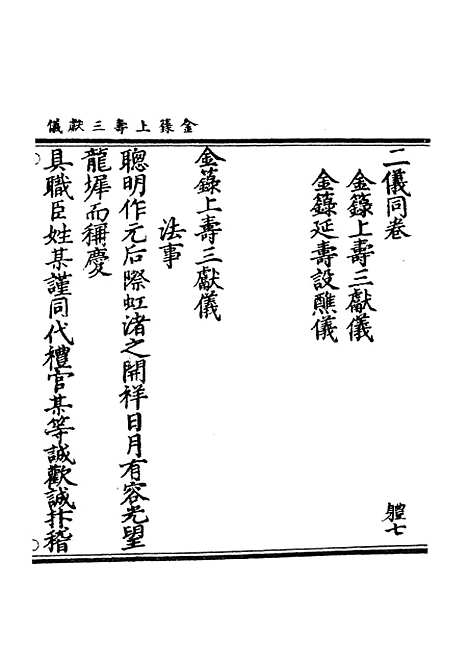 金籙上壽三獻儀
二儀同卷
金籙上壽三獻儀
金籙延壽設醮儀
體七
金籙上壽三獻儀
法事
聰明作元后際虹渚之開祥日月有容光望
龍墀而稱慶
具職臣姓某謹同代禮官某等誠歡誠抃稽